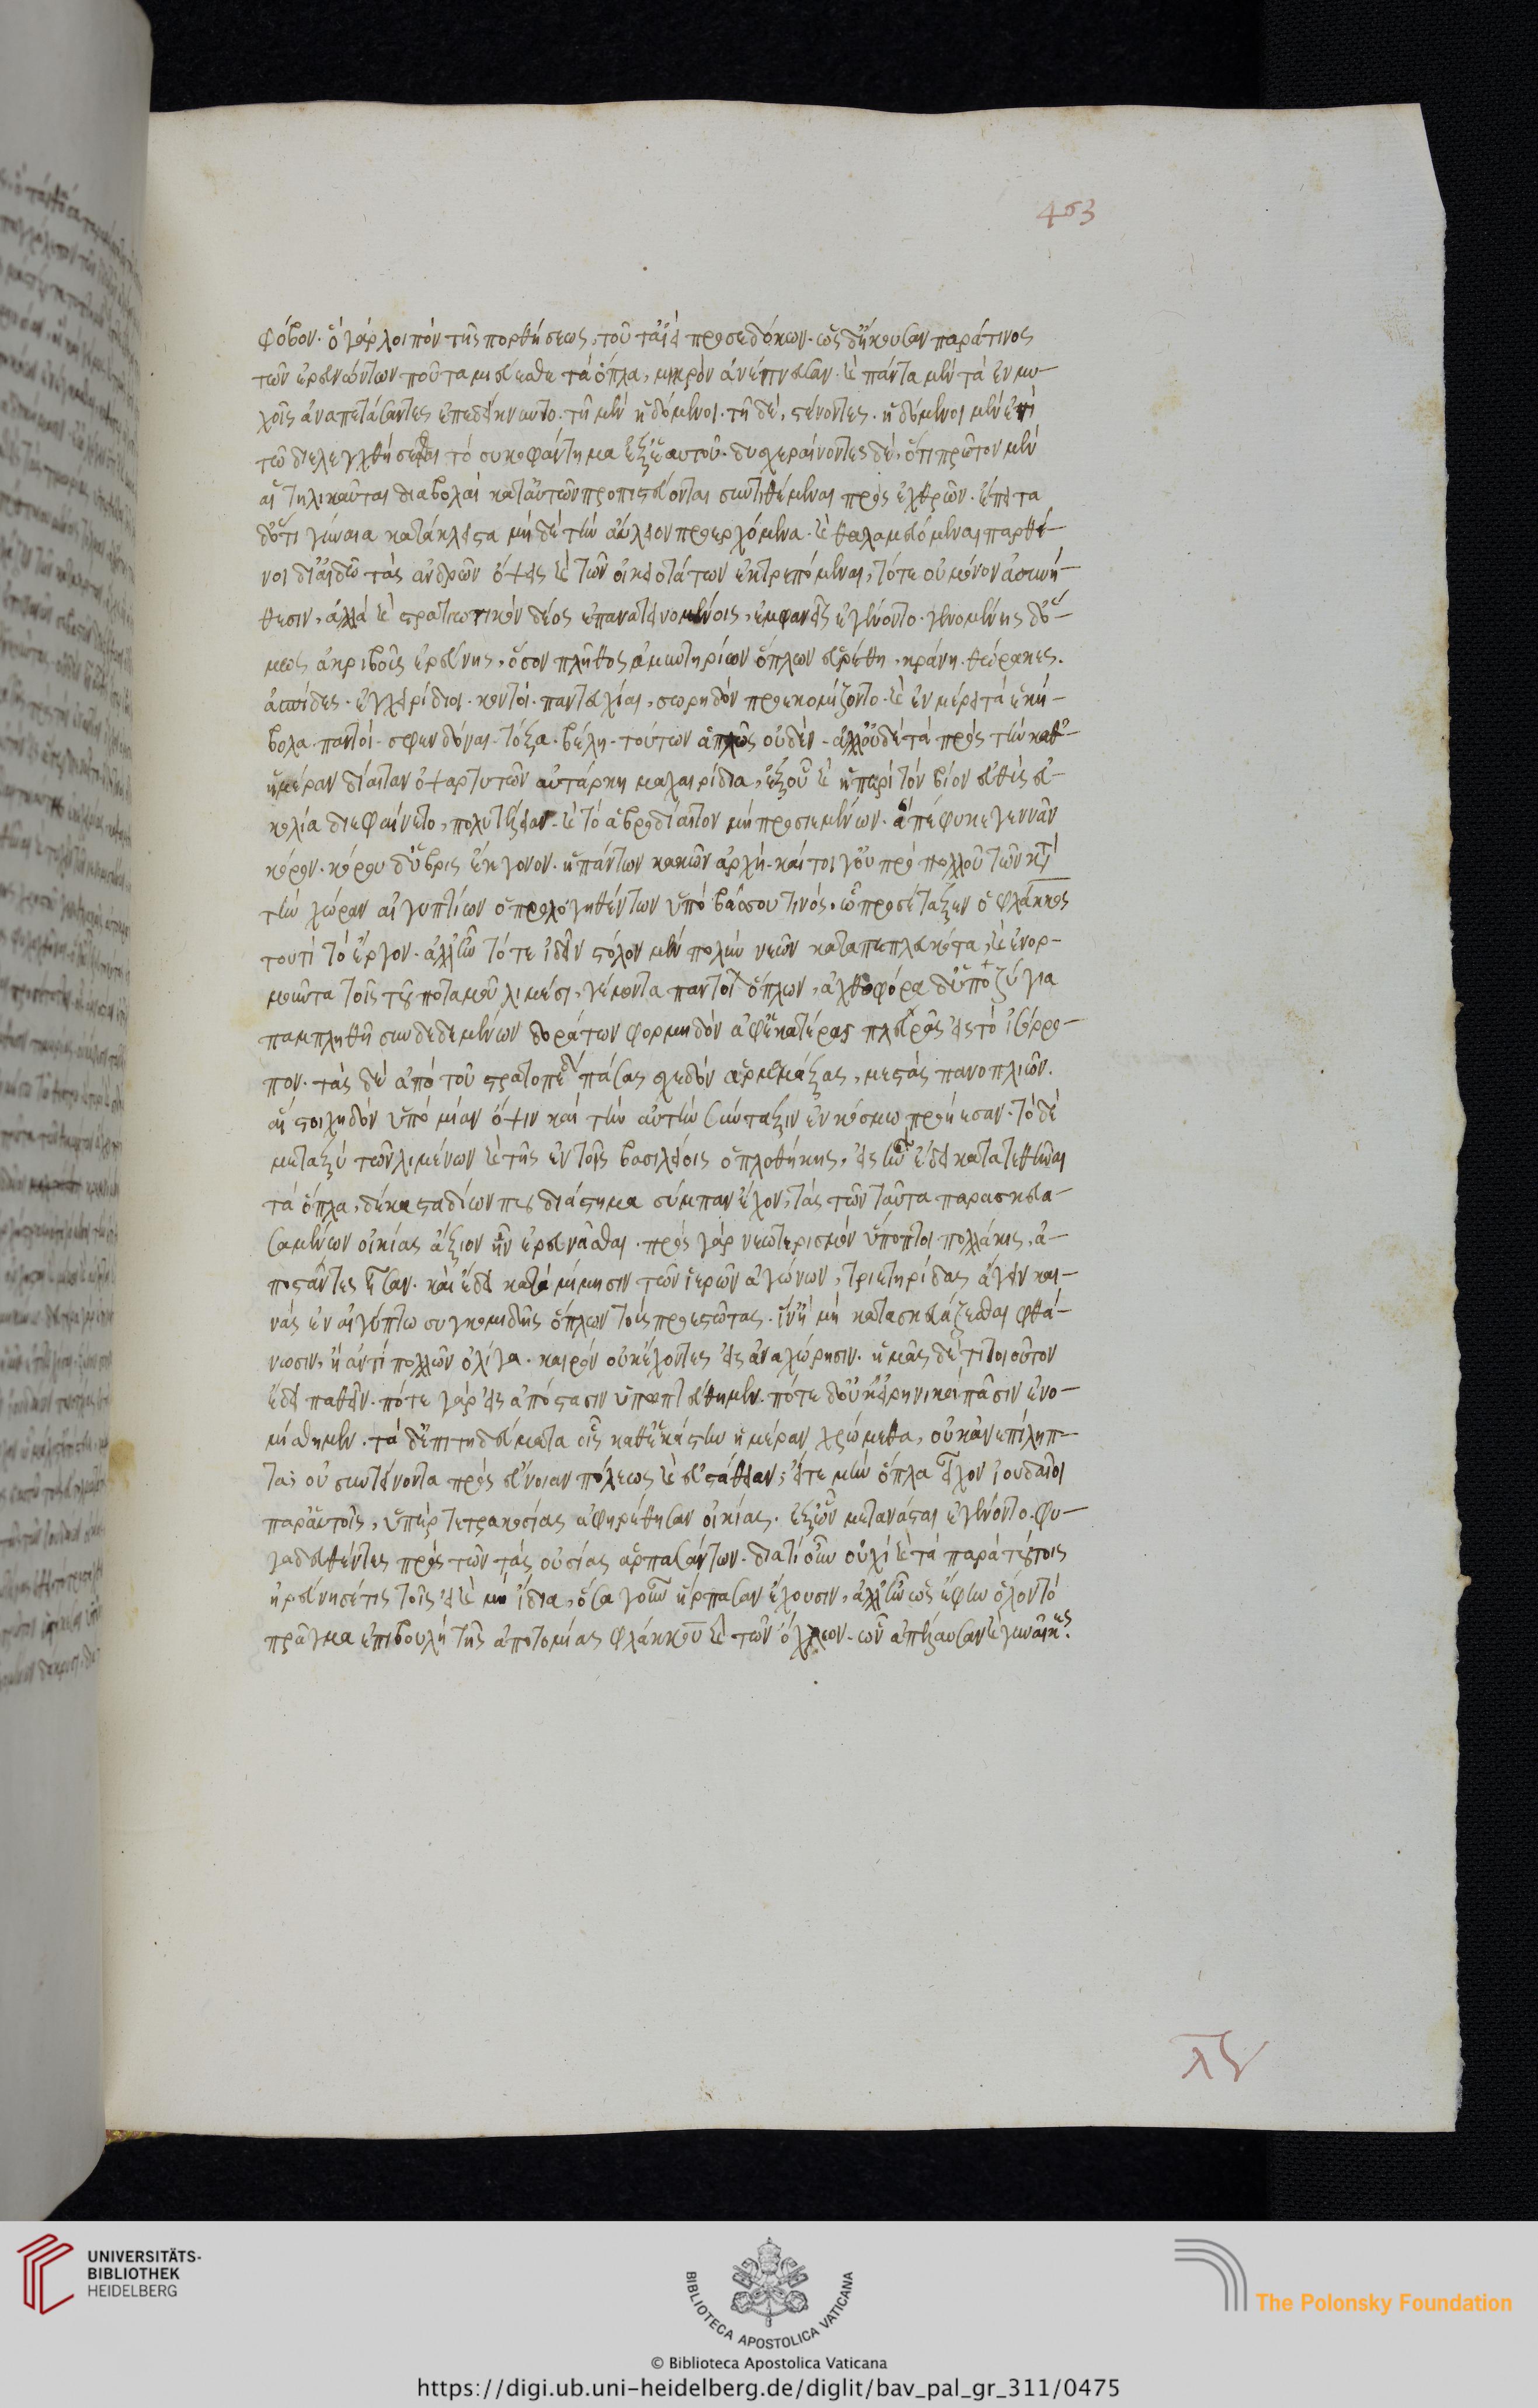 463
φόβον. ὁ γάρ λοιπόν τῆς πορθήσεως, τοῦτ' ἀεί προσεδόκων. ὡς δ' ἤκουσαν παρά τινος
τῶν ἐρευνώντων ποῦ ταμιεύεσθε τά ὅπλα, μικρόν ἀνέπνευσαν. καί πάντα μέν τά ἐν μυ-
χοῖς ἀναπετάσαντες ἐπεδείκνυντο. τῆ μέν ἡδόμενοι. τῆ δέ, στένοντες. ἡδόμενοι μέν ἐπί
τῶ διελεγχθήσεσθαι τό συκοφάντημα ἐξ ἑαυτοῦ. δυσχεραίνοντες δέ, ὅτι πρῶτον μέν
αἱ τηλικαῦται διαβολαί κατ' αὐτῶν προπιστεύονται συντιθέμεναι πρός ἐχθρῶν. ἔπειτα
δ' ὅτι γύναια κατάκλειστα μή δέ τήν αὔλειον προερχόμενα. καί θαλαμευόμεναι παρθέ-
νοι δι' αἰδῶ τάς ἀνδρῶν ὄψεις καί τῶν οἰκειοτάτων ἐκτρεπόμεναι, τότε οὐ μόνον ἀσυνή-
θεσιν, ἀλλά καί στρατιωτικόν δέος ἐπανατεινομένοις, ἐμφανεῖς ἐγένοντο. γενομένης δ' ὅ-
μως ἀκριβοῦς ἐρεύνης, ὅσον πλῆθος ἀμυντηρίων ὅπλων εὑρέθη, κράνη. θώρακες.
ἀσπίδες. ἐγχειρίδιοι. κοντοί. παντευχίαι, σωρηδόν προεκομίζοντο. καί ἐν μέρει τά ἑκη-
βόλα. παλτοί. σφενδόναι. τόξα. βέλη. τούτων ἁπλῶς οὐδέν. ἀλλ' οὐδέ τά πρός τήν καθ'
ἡμέραν δίαιταν ὀψαρτυτῶν αὐτάρκη μαχαιρίδια, ἐξ οὗ καί ἡ περί τόν βίον εὐθύς εὐ-
κολία διεφαίνετο, πολυτέλειαν. καί τό ἁβροδίαιτον μή προσιεμένων. ἅ πέφυκε γεννᾶν
κόρον. κόρου δ' ὕβρις ἔκγονον. ἡ πάντων κακῶν ἀρχή. καίτοι γ' οὐ πρό πολλοῦ τῶν κατά
τήν χώραν αἰγυπτίων ὁπλολογηθέντων ὑπό βάσσου τινός, ὧ προσέταξεν ὁ φλάκκος
τουτί τό ἔργον. ἀλλ' ἦν τότε ἰδεῖν στόλον μέν πολύν νεῶν καταπεπλευκότα, καί ἐνορ-
μοῦντα τοῖς τοῦ ποταμοῦ λιμέσι, γέμοντα παντοίων ὅπλων, ἀχθοφόρα δ' ὑποζύγια
παμπληθῆ συνδεδεμένων δοράτων φορμηδόν ἀφ' ἑκατέρας πλευρᾶς εἰς τό ἰσόρρο-
πον. τάς δέ ἀπό τοῦ στρατοπέδου πάσας σχεδόν ἁρμαμάξας, μεστάς πανοπλιῶν.
αἵ στοιχηδόν ὑπό μίαν ὄψιν καί τήν αὐτήν σύνταξιν ἐν κόσμω προῄεσαν. τό δέ
μεταξύ τῶν λιμένων καί τῆς ἐν τοῖς βασιλείοις ὁπλοθήκης, εἰς ἥν ἔδει κατατεθῆναι
τά ὅπλα, δέκα σταδίων που διάστημα σύμπαν εἶχον, τάς τῶν ταῦτα παρασκευα-
σαμένων οἰκίας ἄξιον ἦν ἐρευνᾶσθαι. πρός γάρ νεωτερισμόν ὕποπτοι πολλάκις, ἀ-
ποστάντες ἦσαν. καί ἔδει κατά μίμησιν τῶν ἱερῶν ἀγώνων, τριετηρίδας ἄγειν και-
νάς ἐν αἰγύπτω συγκομιδῆς ὅπλων τούς προεστῶτας. ἵν' ἤ μή κατασκευάζεσθαι φθά-
νωσιν, ἤ ἀντί πολλῶν ὀλίγα. καιρόν οὐκ ἔχοντες εἰς ἀναχώρησιν. ἡμᾶς δέ τί τοιοῦτον
ἔδει παθεῖν. πότε γάρ εἰς ἀπόστασιν ὑπωπτεύθημεν. πότε δ' οὐκ εἰρηνικοί πᾶσιν ἐνο-
μίσθημεν. τά δ' ἐπιτηδεύματα οἷς καθ' ἑκάστην ἡμέραν χρώμεθα, οὐκ ἀνεπίληπ-
τα; οὐ συντείνοντα πρός εὔνοιαν πόλεως καί εὐστάθειαν; εἴτε μήν ὅπλα εἶχον ἰουδαῖοι
παρ' αὐτοῖς, ὑπέρ τετρακοσίας ἀφηρέθησαν οἰκίας. ἐξ ὧν μετανάσται ἐγένοντο. φυ-
γαδευθέντες πρός τῶν τάς οὐσίας ἁρπασάντων. διατί οὖν οὐχί καί τά παρά τούτοις
ἠρεύνησέ τις τοῖς εἰ καί μή ἴδια, ὅσα γοῦν ἥρπασαν ἔχουσιν, ἀλλ' ἦν ὡς ἔφην ὅλον τό
πρᾶγμα ἐπιβουλή τῆς ἀποτομίας φλάκκου καί τῶν ὄχλων. ὧν ἀπέλαυσαν καί γυναῖκες.
UNIVERSITÄTS-
BIBLIOTHEK
HEIDELBERG
BIBLIOTECA APOSTOLICA VATICANA
The Polonsky Foundation
© Biblioteca Apostolica Vaticana
https://digi.ub.uni-heidelberg.de/diglit/bav_pal_gr_311/0475